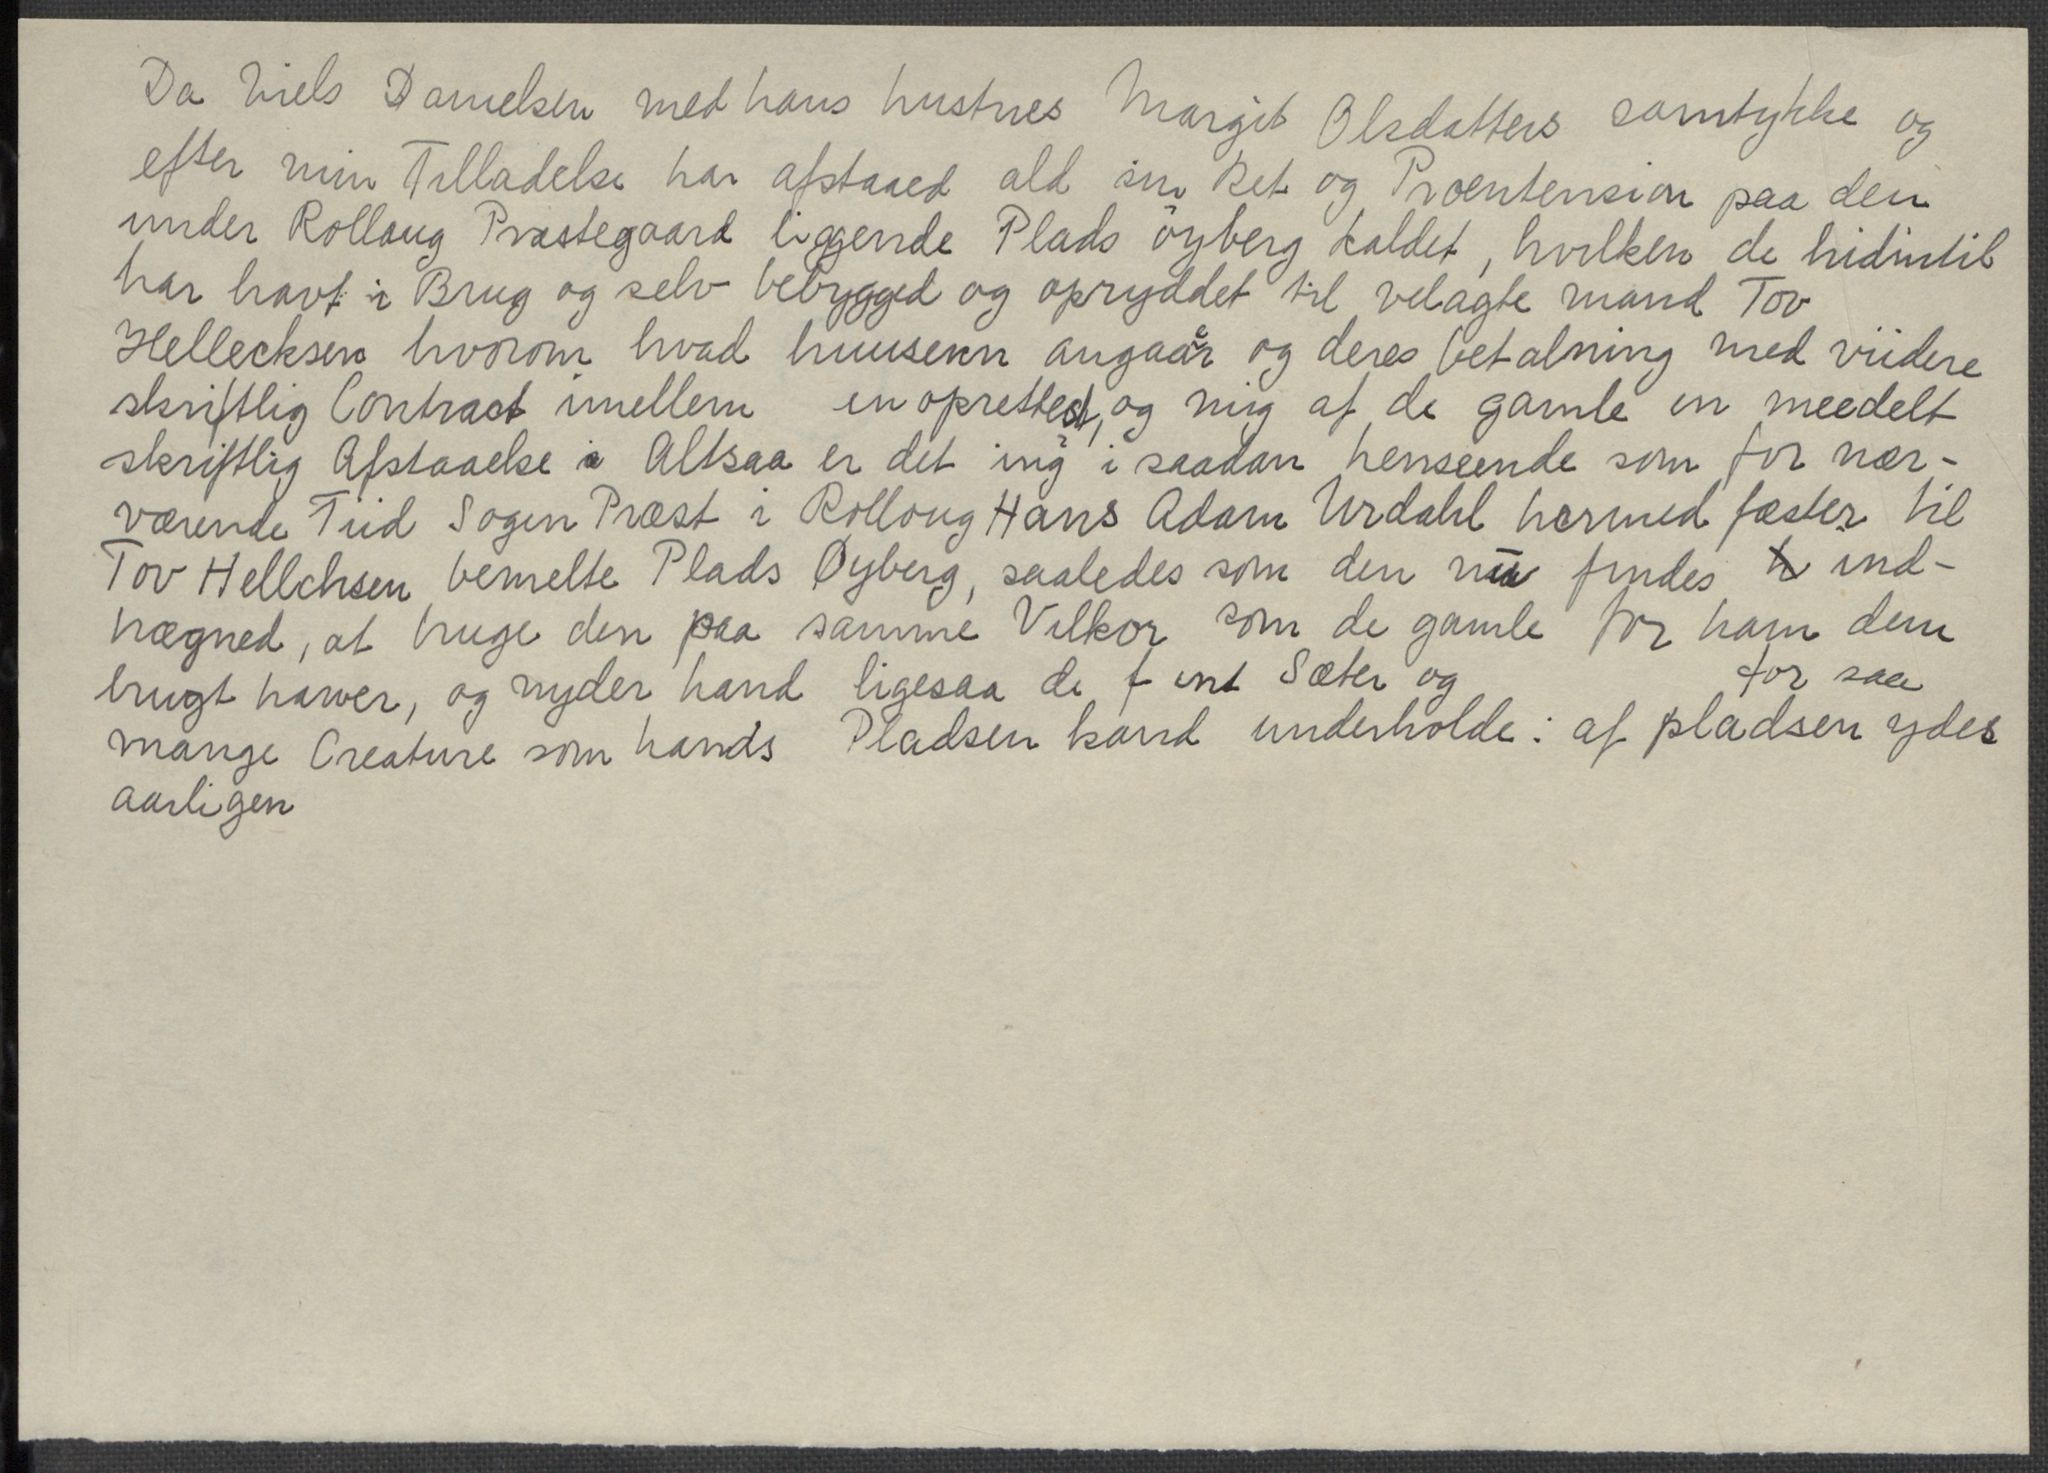 Da Niels Danielsen med hans hustrues Margit Olsdatters samtykke og
efter min Tilladelse har afstaaed ald sin Ret og Proentension paa den
under Rollaug Præstegaard liggende Plads öyberg kaldet, hvilken de hidintil
har havt i Brug og selv bebygged og opryddet til velagte mand Tov
Hellecksen hvorom hvad huusenn angaaer og deres betalning med viidere
skriftlig Contract imellem en oprettedt, og mig af de gamle en meedelt
skriftlig Afstaaelse Altsaa er det ing i saadan henseende som for nær-
værende Tiid Sogen Præst i Rolloug Hans Adam Urdahl hermed fæster til
Tov Hellchsen bemelte Plads Øyberg, saaledes som den nu findes ind-
hægned, at bruge den paa samme Vilkor som de gamle for ham dem
brugt hawer, og nyder hand ligesaa de f int Sæter og for saa
mange Creature som hands Pladsen kand underholde: af pladsen ydes
aarligen